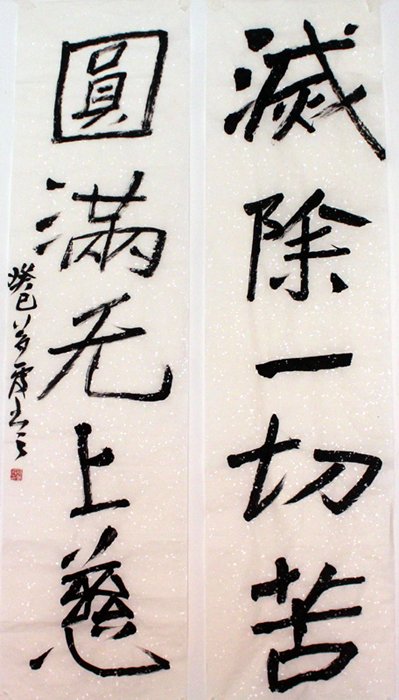 滅除一切苦
圓滿无上慈
癸巳